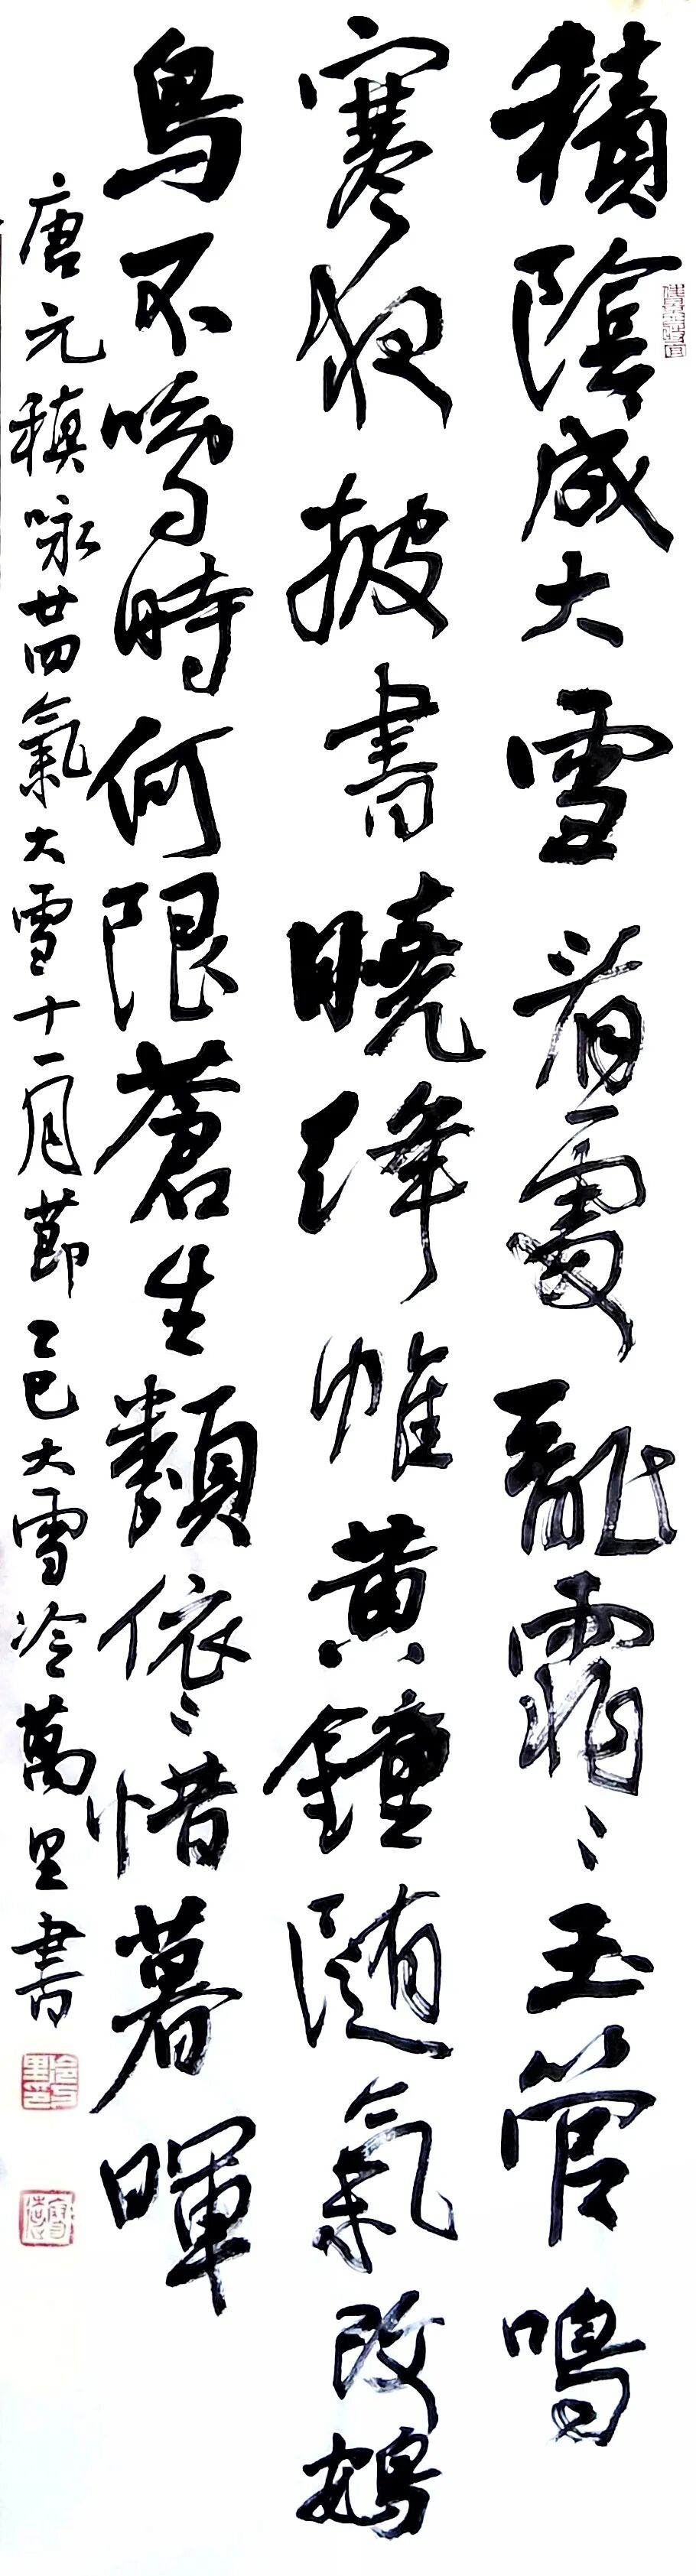 積陰成大雪看處亂霏〻玉管鳴
寒夜披書曉絳帷黄鐘随氣改鷃
鳥不鳴時何限蒼生類依〻惜暮暉
唐元稹咏廿四氣大雪十一月節乙巳大雪冷萬里書